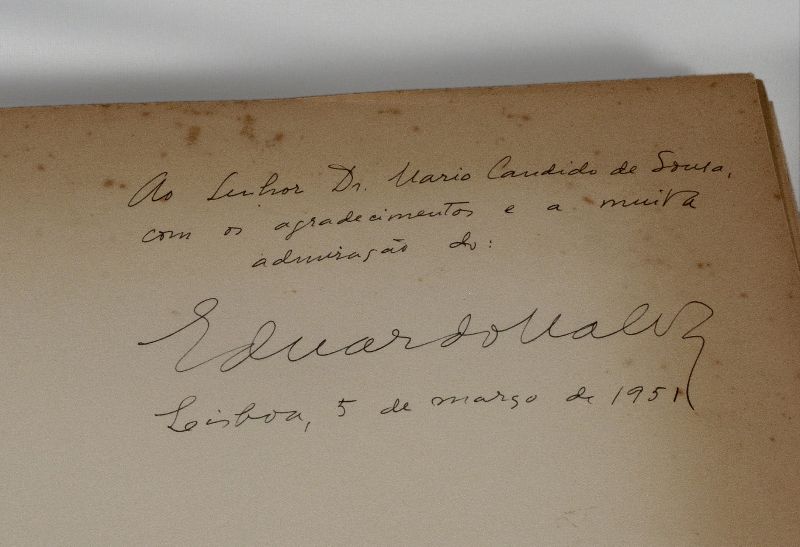 Ao Senhor Dr. Mario Candido de Sousa,
com os agradecimentos e a muita
admiração do:
Eduardo Malta
Lisboa, 5 de março de 1951